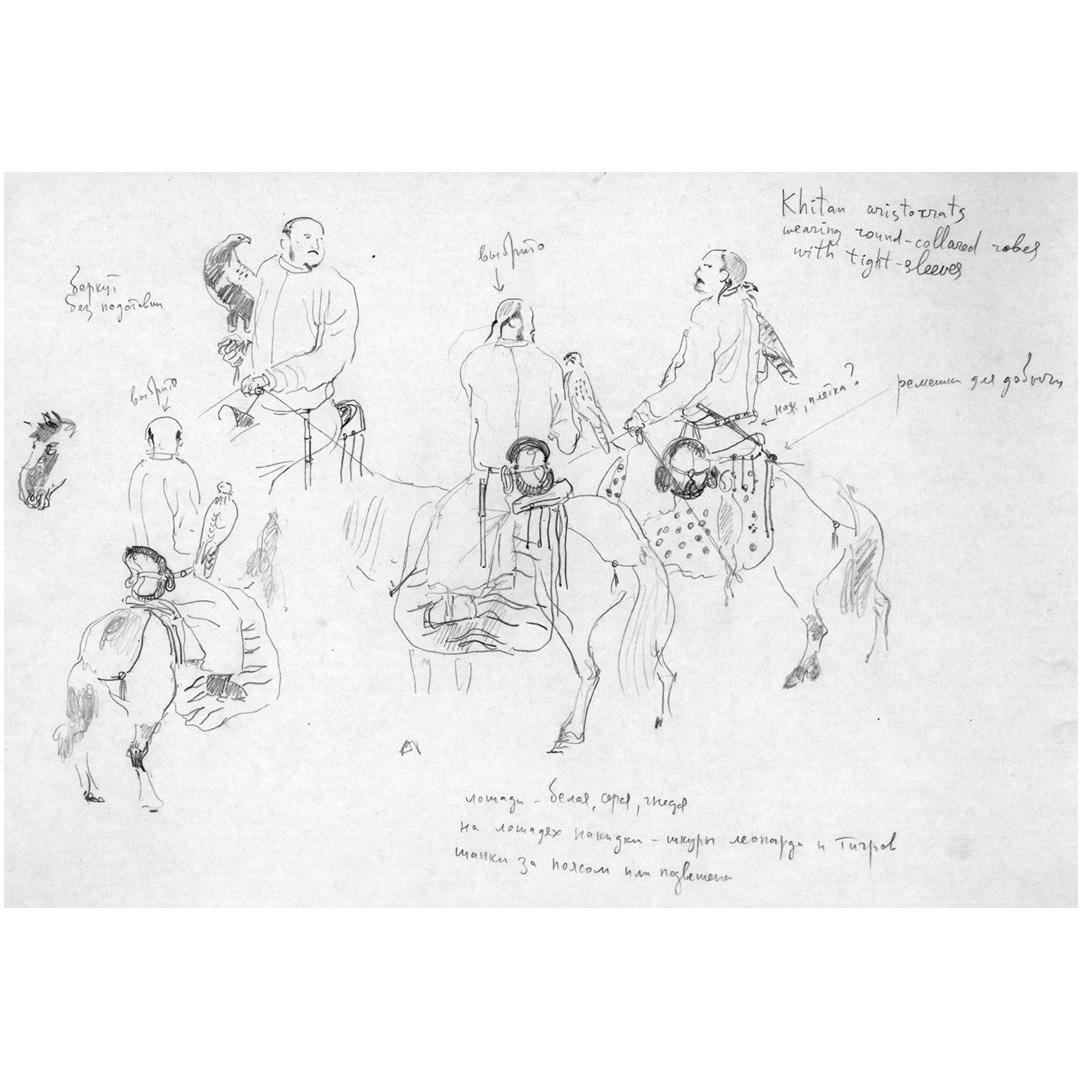 Khitan aristocrats
wearing round-collared robes
with tight-sleeves
беркут
без подставки
выбрито
выбрито
нож, плётка?
ремешки для добычи
лошади - белая, серая, гнедая
на лошадях накидки - шкуры леопарда и тигров
шапки за поясом или подвешены